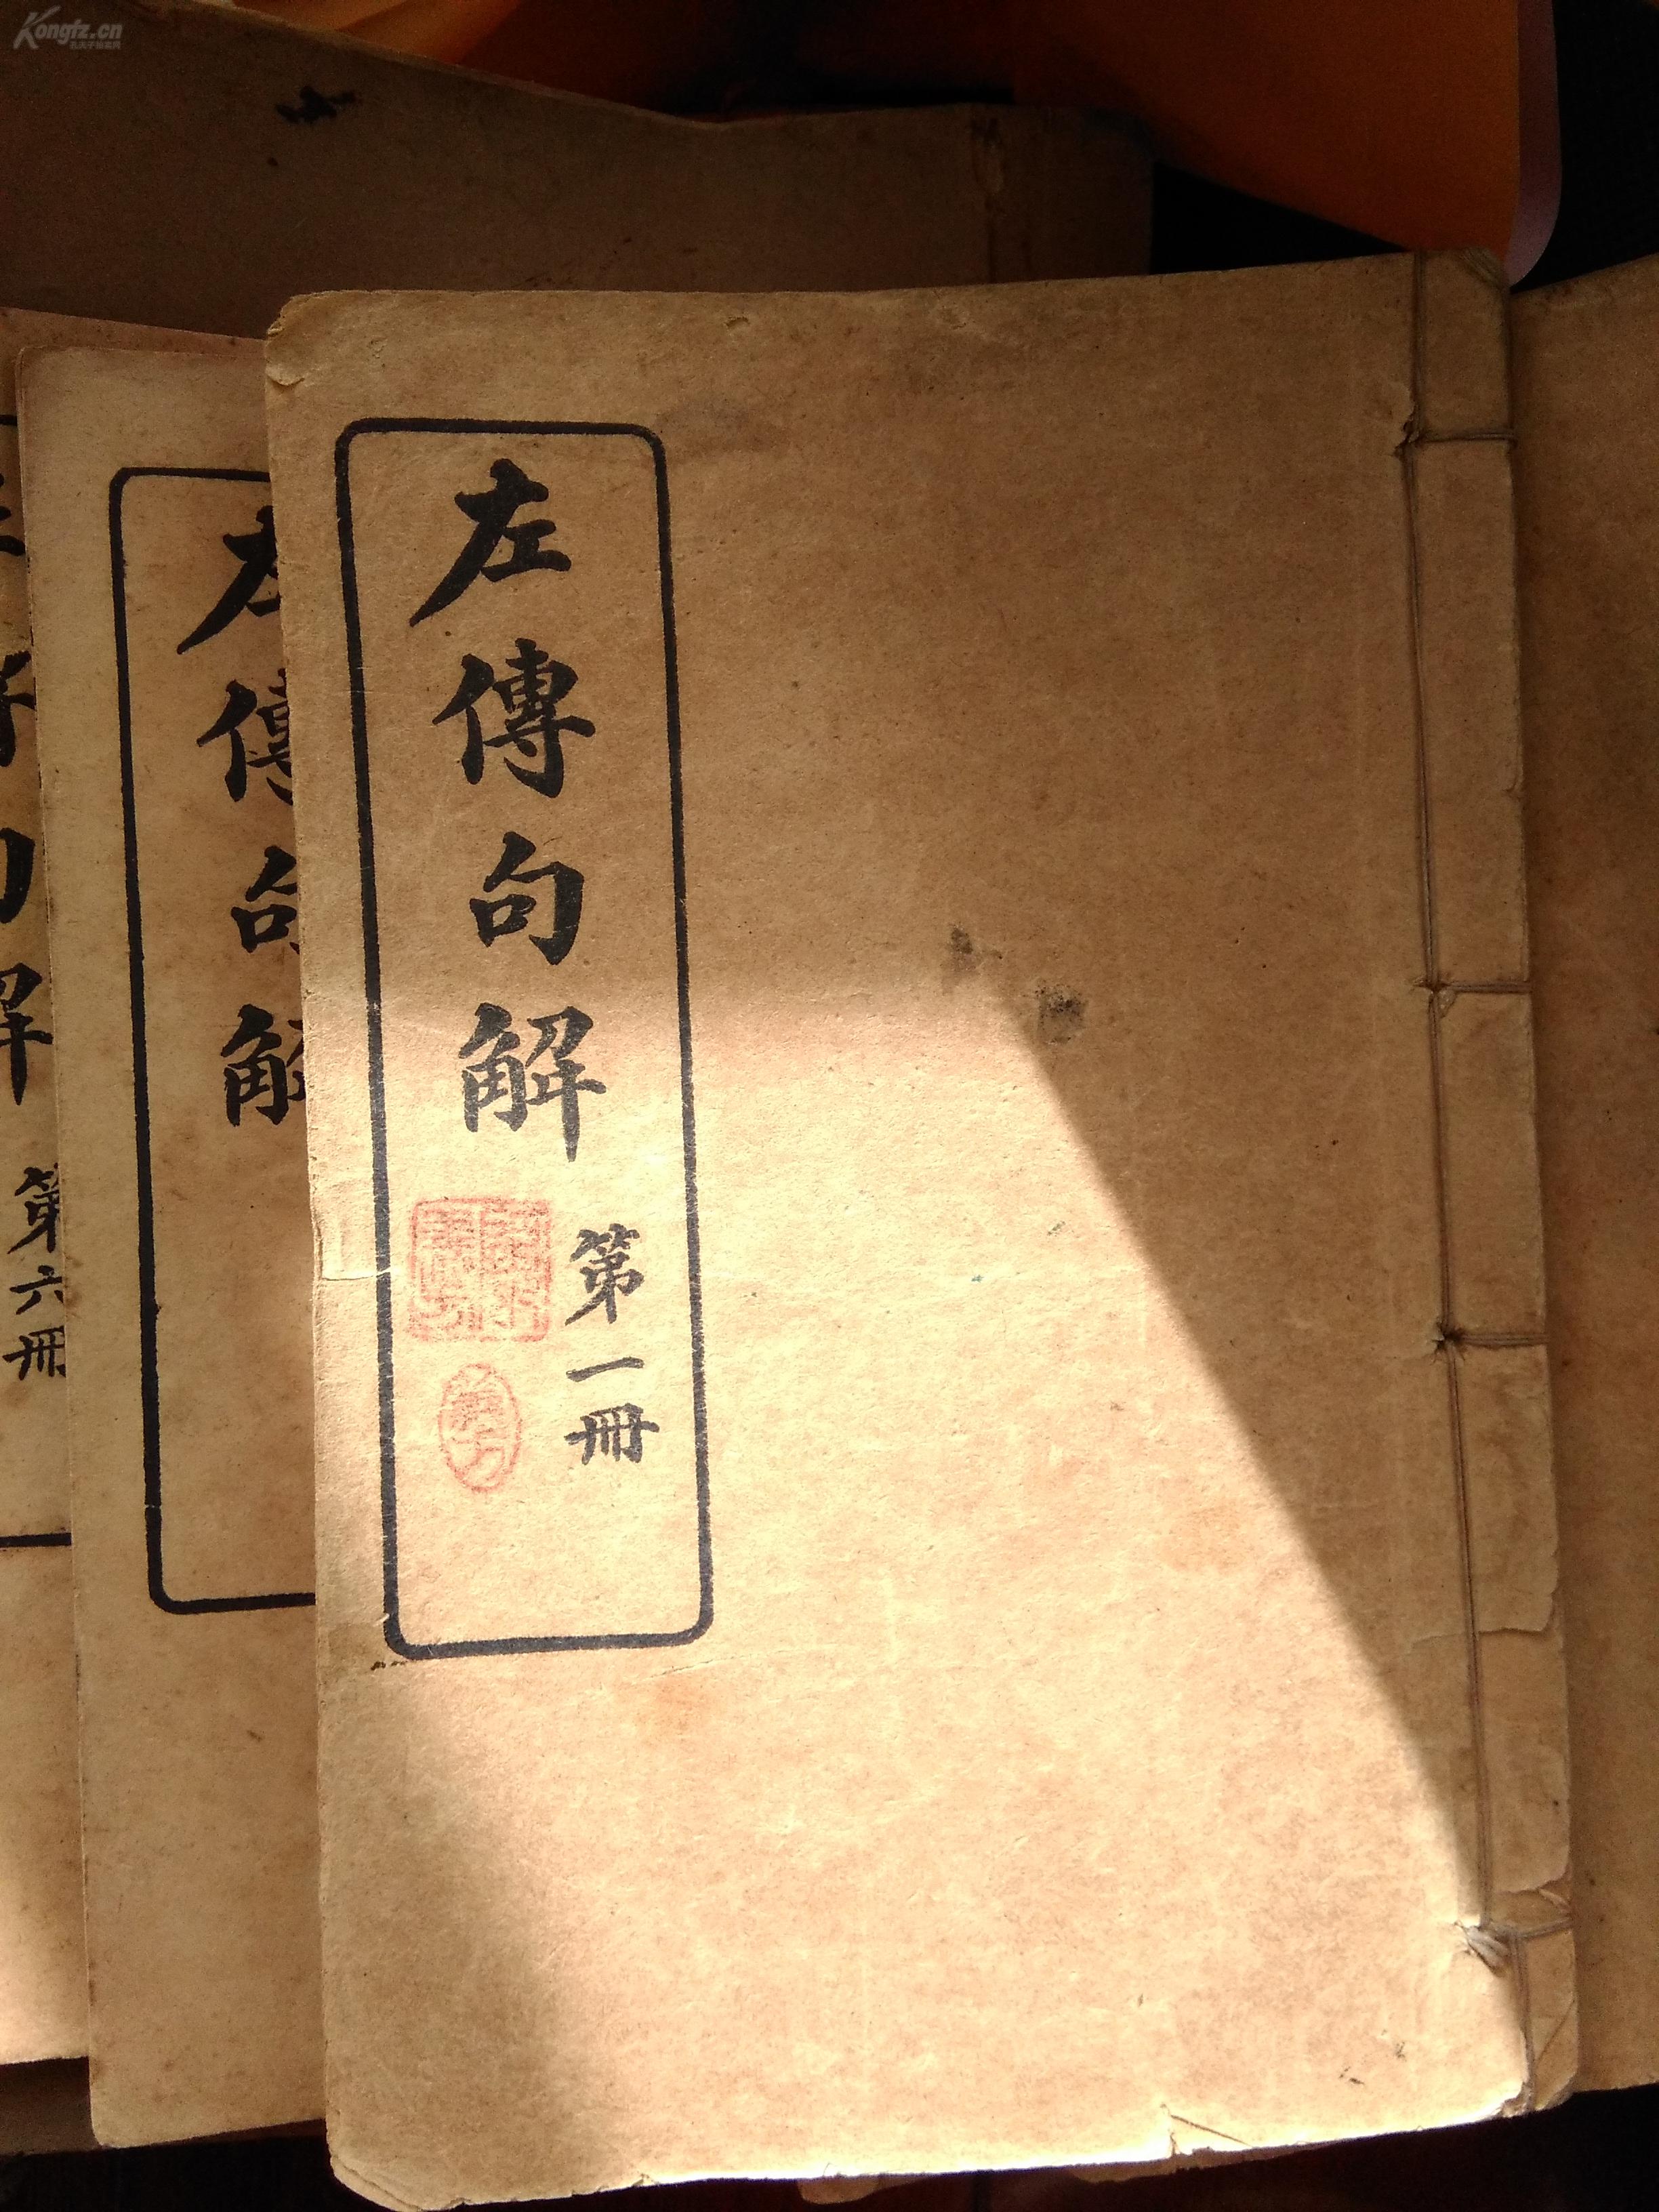 Kongfz.cn
左傳句解
第一冊
左傳句解
解
第六冊